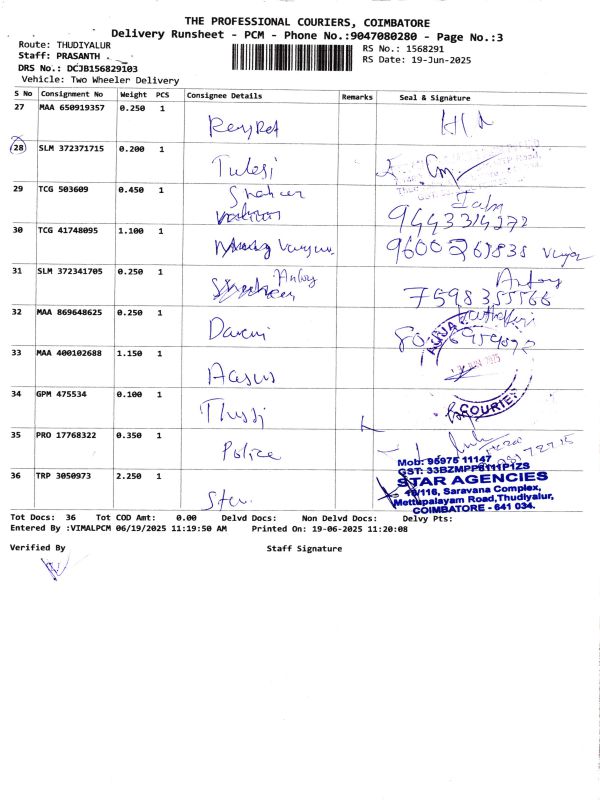 THE PROFESSIONAL COURIERS, COIMBATORE
Delivery Runsheet - PCM - Phone No.:9047080280 - Page No.:3
Route: THUDIYALUR
RS No.: 1568291
Staff: PRASANTH .
RS Date: 19-Jun-2025
DRS No.: DCJB156829103
Vehicle: Two Wheeler Delivery
S No Consignment No Weight PCS Consignee Details Remarks Seal & Signature
27 MAA 650919357 0.250 1
28 SLM 372371715 0.200 1
Tulesi
29 TCG 503609 0.450 1
9443314272
30 TCG 41748095 1.100 1
31 SLM 372341705 0.250 1
Antony
7598355566
32 MAA 869648625 0.250 1
33 MAA 400102688 1.150 1
JUN 2025
34 GPM 475534 0.100 1
COURIER
35 PRO 17768322 0.350 1
Police
36 TRP 3050973 2.250 1
Mob: 95975 11147
GST: 33BZMPP8111P1ZS
STAR AGENCIES
10/116, Saravana Complex,
Mettupalayam Road,Thudiyalur,
COIMBATORE - 641 034.
Tot Docs: 36 Tot COD Amt: 0.00 Delvd Docs: Non Delvd Docs: Delvy Pts:
Entered By :VIMALPCM 06/19/2025 11:19:50 AM Printed On: 19-06-2025 11:20:08
Verified By Staff Signature